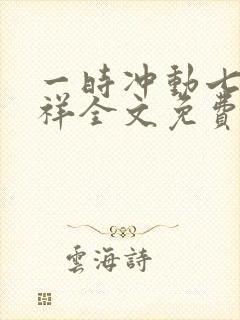 一時冲動七
祥全文免費
雲海詩